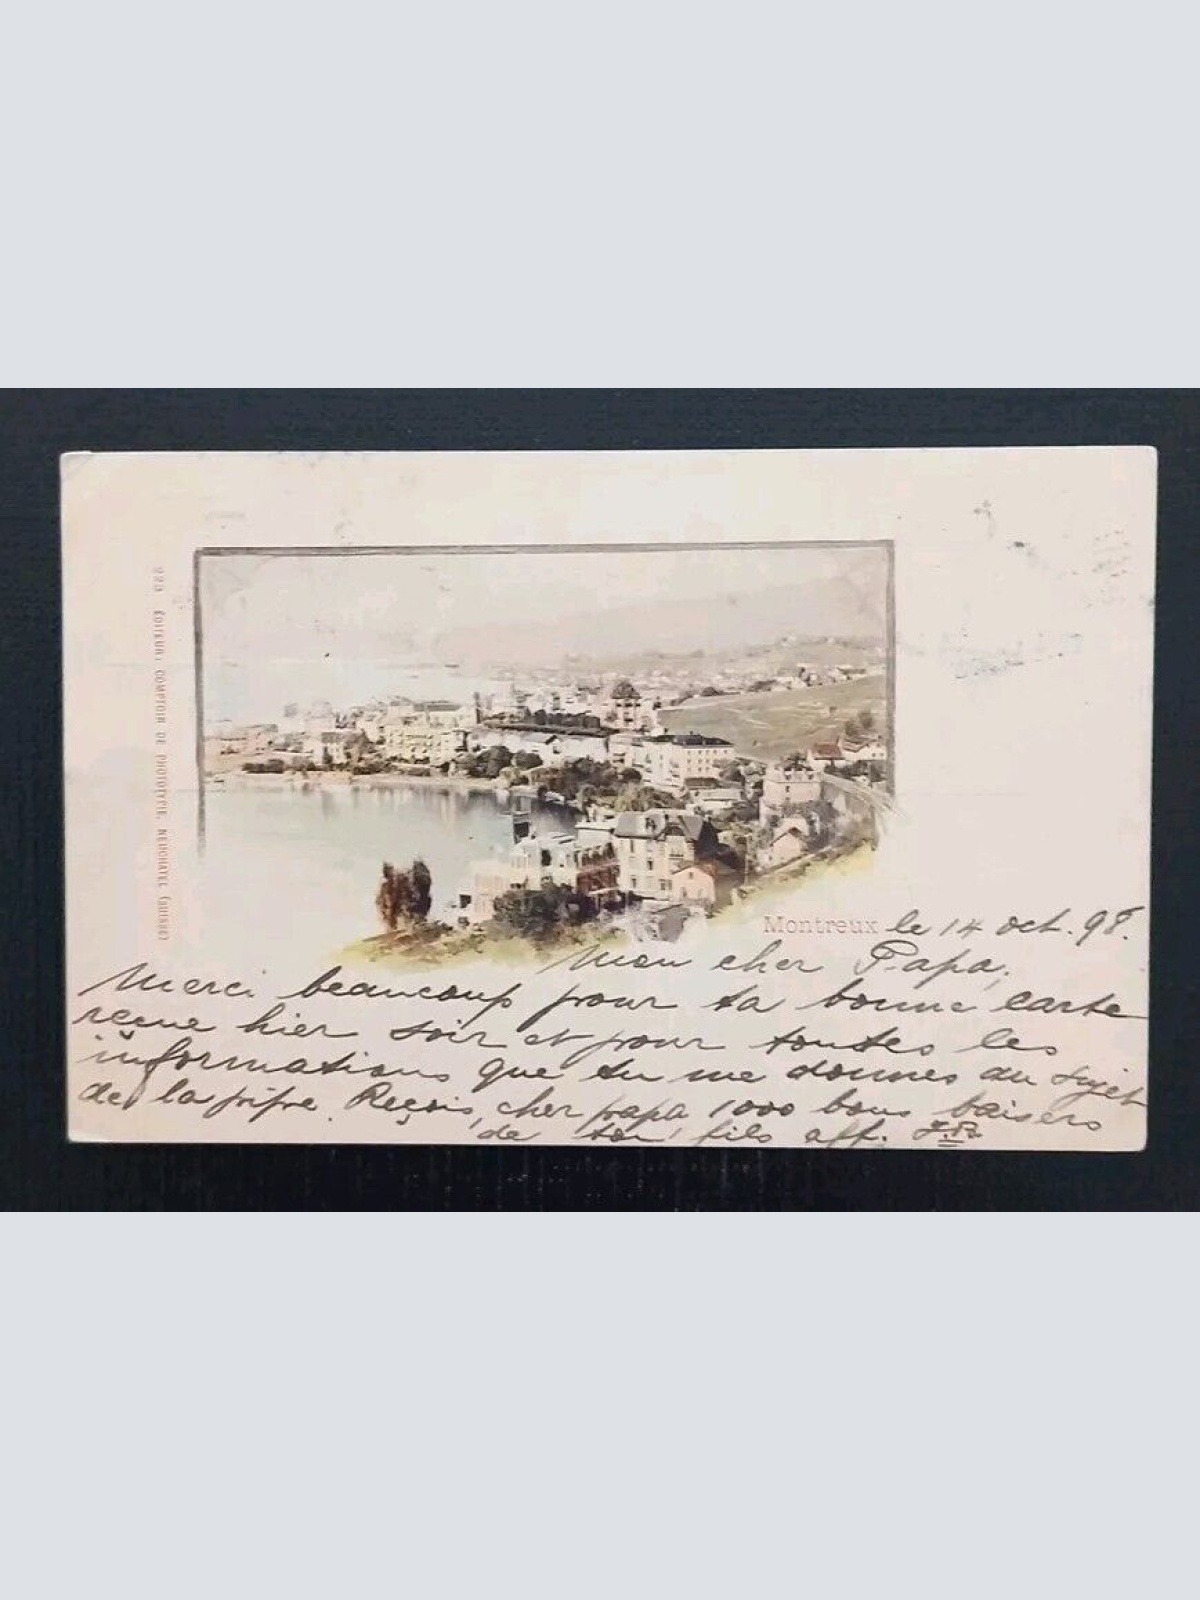 Montreux le 14 oct. 98.
Mon cher Papa,
Merci beaucoup pour ta bonne carte
reçue hier soir et pour toutes les
informations que tu me donnes au sujet
de la pipe. Reçois, cher papa 1000 bons baisers
de ton fils aff.
ÉDITEUR: COMPTOIR DE PHOTOTYPIE, NEUCHATEL (SUISSE)